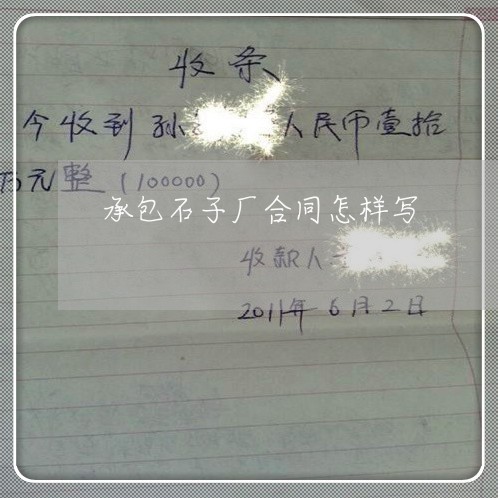 收条
今收到孙 人民币壹拾
万元整（100000）
承包石子厂合同怎样写
收款人
2011年6月2日